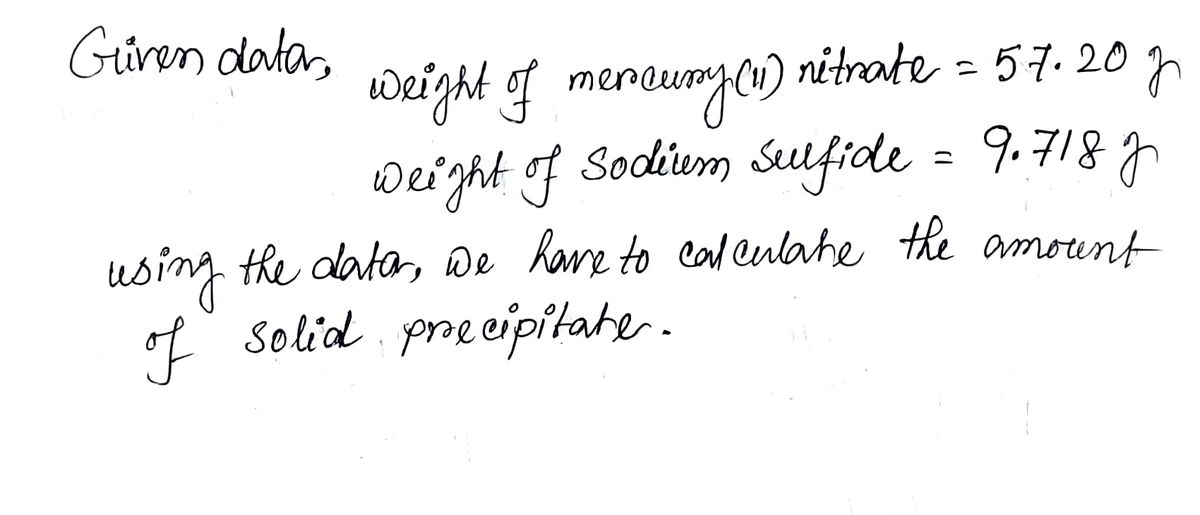 Given data,
weight of mercury(II) nitrate = 57.20 g
weight of Sodium Sulfide = 9.718 g
using the data, we have to calculate the amount
of solid precipitate.